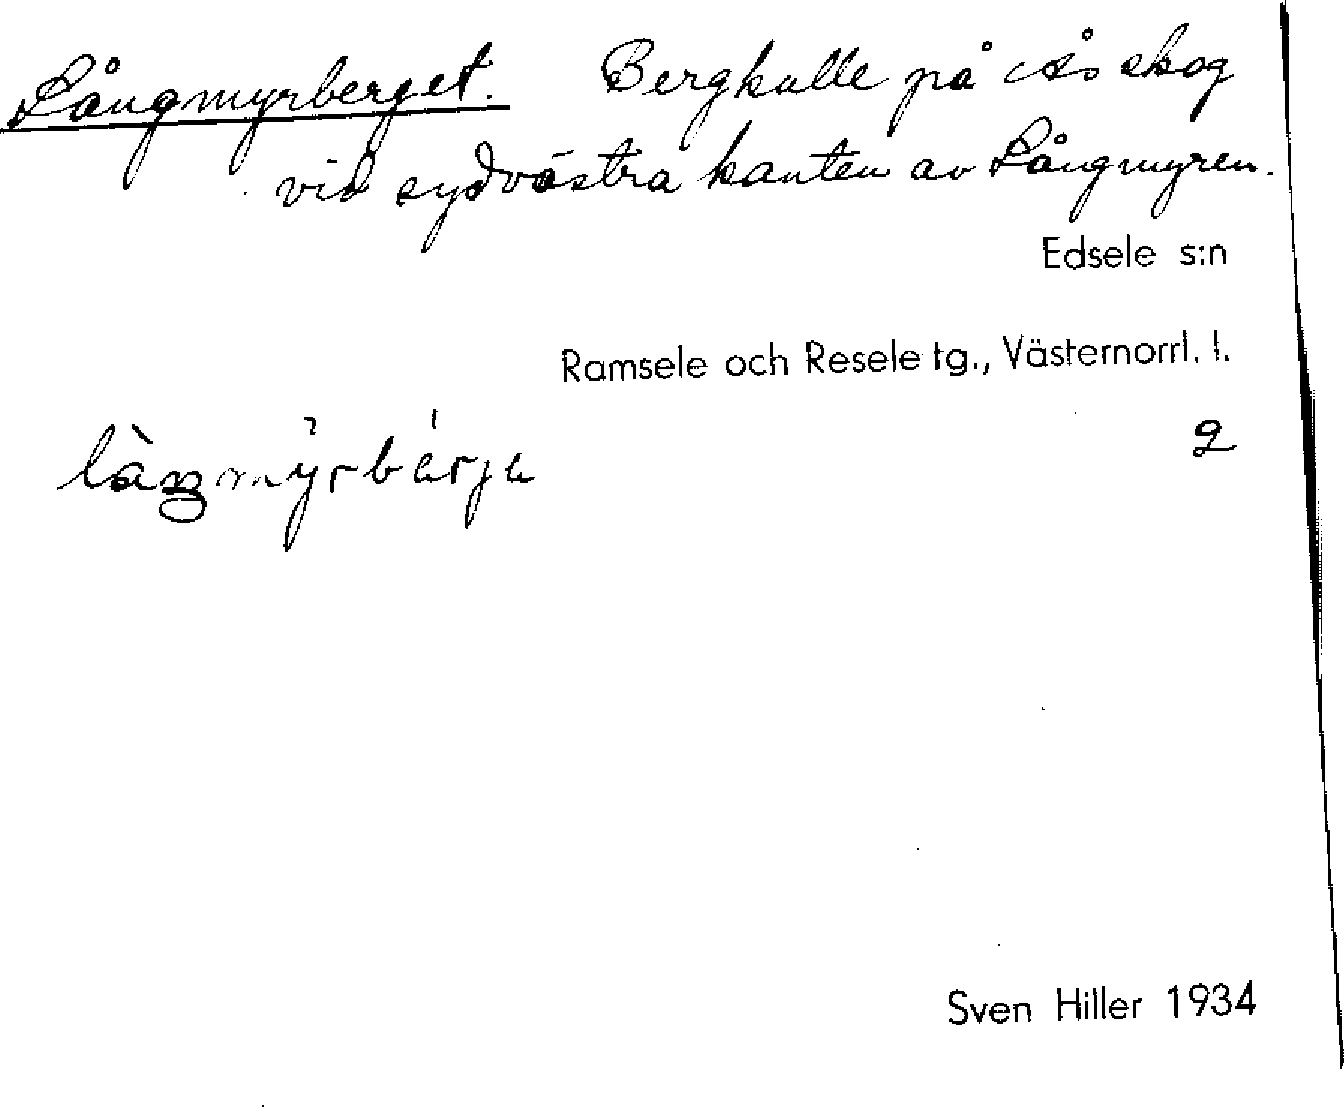 Långmyrberget. Bergkulle på Ås skog
vid sydvästra kanten av Långmyren.
Edsele s:n
Ramsele och Resele tg., Västernorrl. l.
2
Sven Hiller 1934